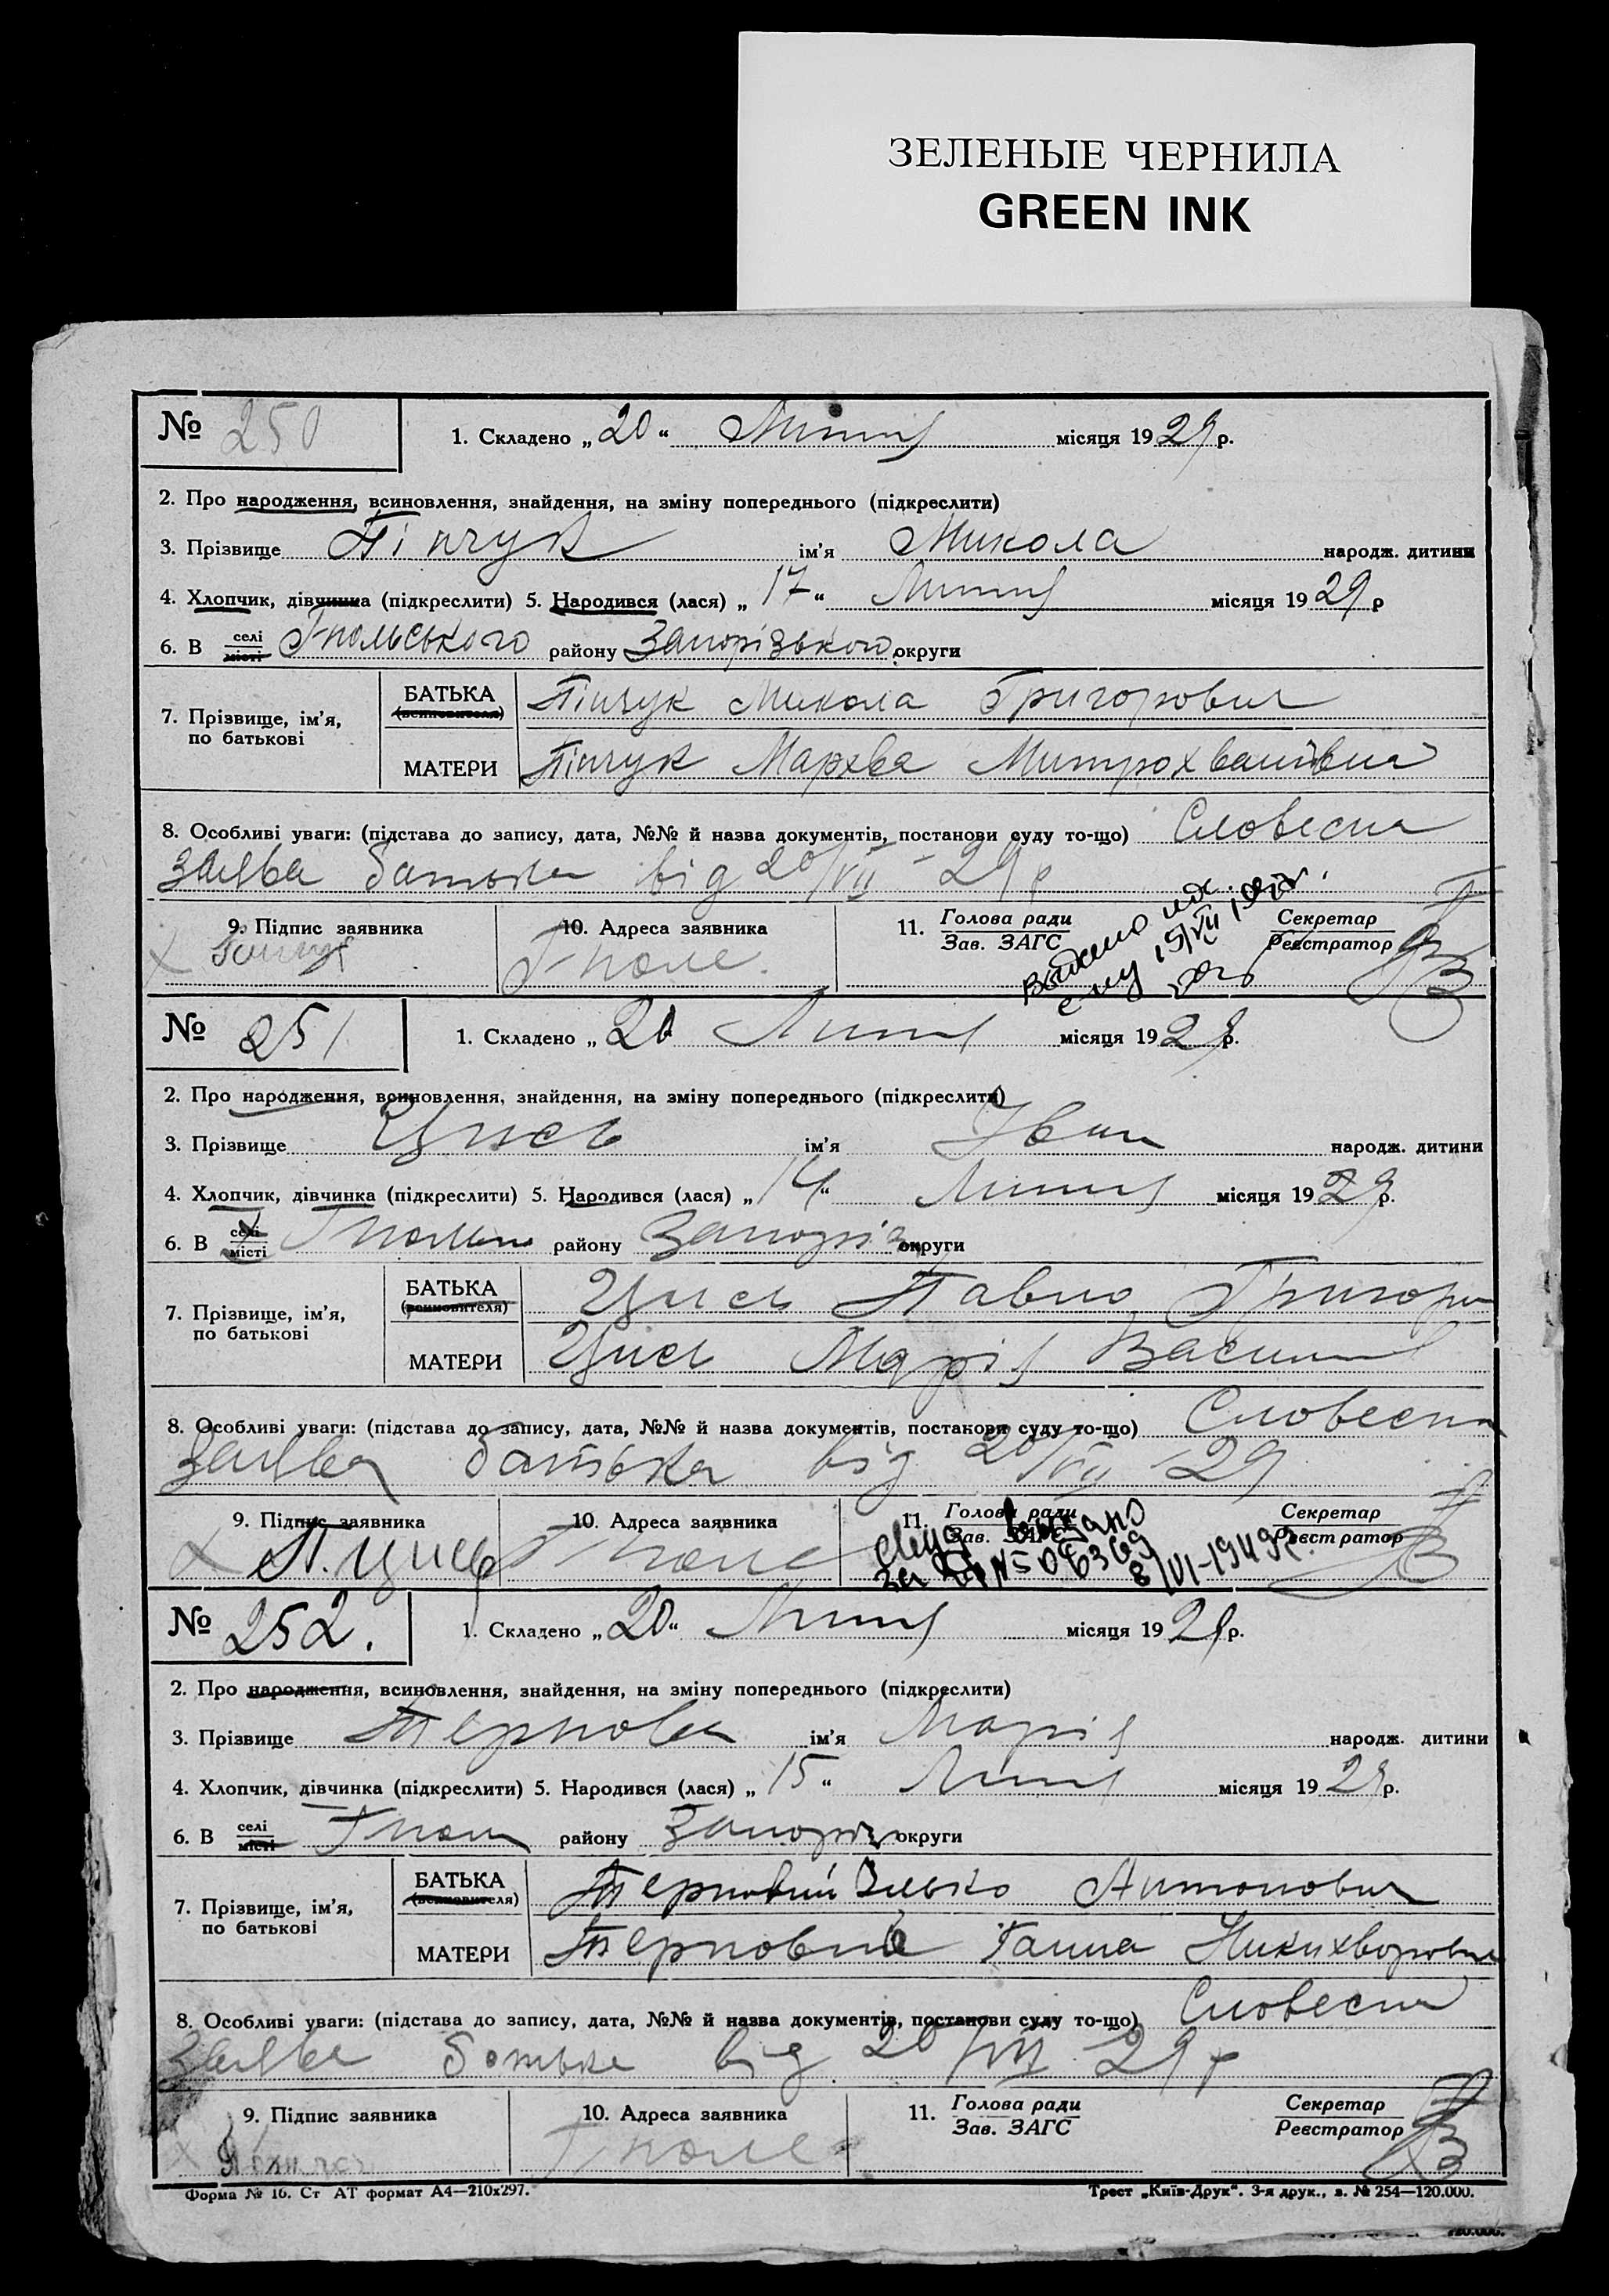 ЗЕЛЕНЫЕ ЧЕРНИЛА
GREEN INK
№ 250
1. Складено „20“ Липня місяця 1929 р.
2. Про народження, всиновлення, знайдення, на зміну попереднього (підкреслити)
3. Прізвище Пінчук ім'я Микола народж. дитини
4. Хлопчик, дівчинка (підкреслити) 5. Народився (лася) „17“ Липня місяця 1929 р
6. В селі місті Г-польського району Запорізького округи
7. Прізвище, ім'я, по батькові
БАТЬКА (всиновителя) Пінчук Микола Григорович
МАТЕРИ Пінчук Марква Митрохванівна
8. Особливі уваги: (підстава до запису, дата, №№ й назва документів, постанови суду то-що) Словесна
заява батька від 20/VII-29 р
9. Підпис заявника
10. Адреса заявника Г-поле.
11. Голова ради Зав. ЗАГС
Секретар Реєстратор
№ 251
1. Складено „20 Липня місяця 1929 р.
2. Про народження, всиновлення, знайдення, на зміну попереднього (підкреслити)
3. Прізвище Цись ім'я Іван народж. дитини
4. Хлопчик, дівчинка (підкреслити) 5. Народився (лася) „14“ Липня місяця 1929 р.
6. В селі місті Г-польск району Запоріз округи
7. Прізвище, ім'я, по батькові
БАТЬКА (всиновителя) Цись Павло Григори
МАТЕРИ Цись Марія Васил
8. Особливі уваги: (підстава до запису, дата, №№ й назва документів, постанови суду то-що) Словесна
Заява батька від 20/VII-29
9. Підпис заявника П. Цись
10. Адреса заявника Г-поле
11. Голова ради Зав. ЗАГС
Секретар Реєстратор
№ 252.
1. Складено „20“ Липня місяця 1929 р.
2. Про народження, всиновлення, знайдення, на зміну попереднього (підкреслити)
3. Прізвище Тернова ім'я Марія народж. дитини
4. Хлопчик, дівчинка (підкреслити) 5. Народився (лася) „15“ Липня місяця 1929 р.
6. В селі місті Г-пол району Запоріз округи
7. Прізвище, ім'я, по батькові
БАТЬКА (всиновителя) Терновий Ілько Антонович
МАТЕРИ Тернова Ганна Никихворовна
8. Особливі уваги: (підстава до запису, дата, №№ й назва документів, постанови суду то-що) Словесна
Заява батька від 20/VII-29 р
9. Підпис заявника
10. Адреса заявника Г-поле
11. Голова ради Зав. ЗАГС
Секретар Реєстратор
Форма № 16. Ст АТ формат А4—210х297.
Трест „Київ-Друк“. 3-я друк., з. № 254—120.000.